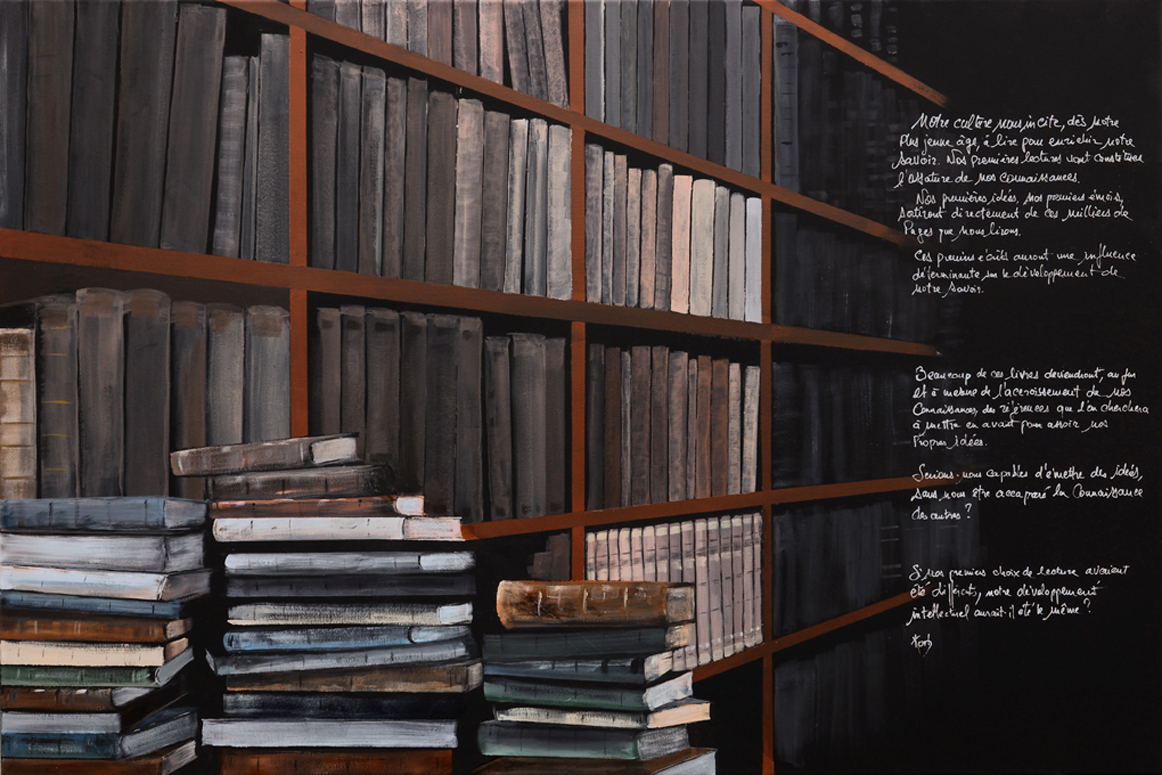 Notre culture nous incite, dès notre
plus jeune âge, à lire pour enrichir notre
savoir. Nos premières lectures vont constituer
l'ossature de nos connaissances.
Nos premières idées, nos premiers émois,
sortiront directement de ces milliers de
Pages que nous lirons.
Ces premiers écrits auront une influence
déterminante sur le développement de
notre savoir.
Beaucoup de ces livres deviendront, au fur
et à mesure de l'accroissement de nos
Connaissances, des références que l'on cherchera
à mettre en avant pour assoir nos
Propres idées.
Serions-nous capables d'émettre des idées,
sans nous être accaparé la Connaissance
des autres ?
Si nos premiers choix de lecture avaient
été différents, notre développement
intellectuel aurait-il été le même ?